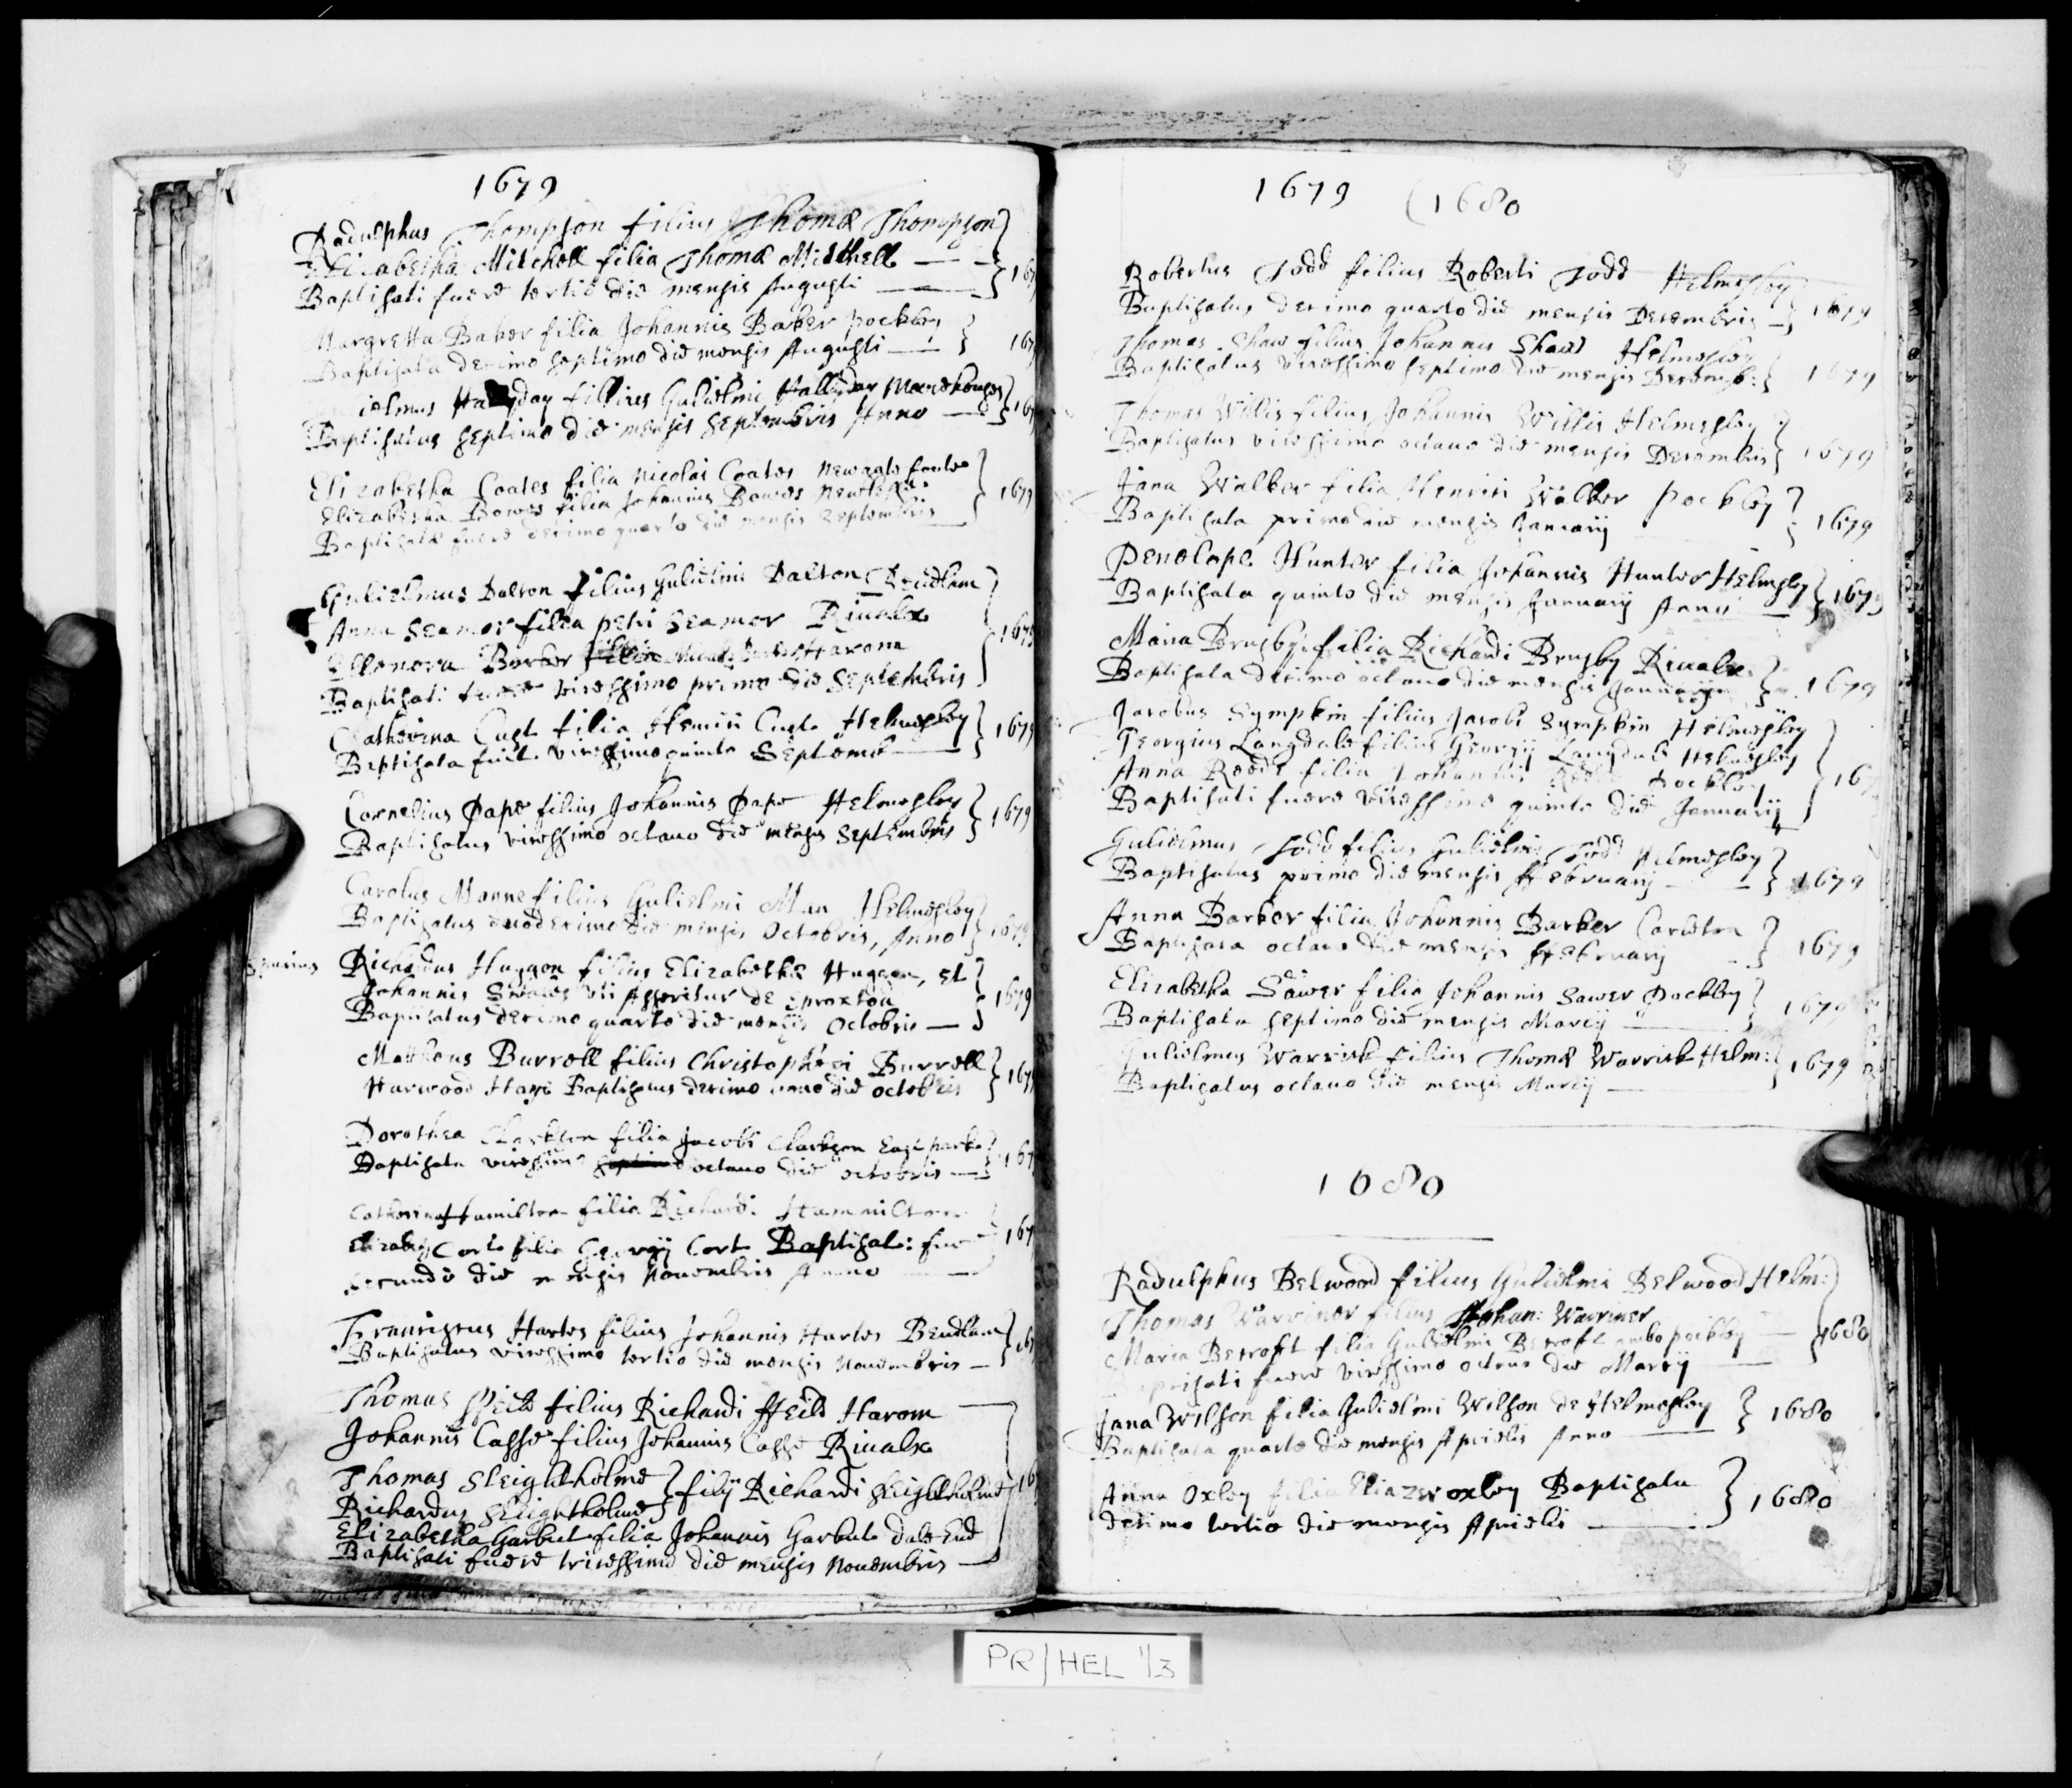 1679
Radulphus Thompson filius Thomæ Thompson
Elizabetha Mitchell filia Thomæ Mitthell
Baptisati fuere tertio die mensis Augusti 167
Margretta Baker filia Johannis Baker Pockley
Baptisata decimo septimo die mensis Augusti 167
ielmus day fillius Gulielmi Halliday
Baptisatus septimo die mensis Septembris Anno 167
Elizabetha Coates filia Nicolai Coates Newgate
Elizabetha Bowes filia Johannis Bowes
Baptisatæ fuere decimo quarto die mensis Septembris 1679
Gulielmus Dalton filius Gulielmi Dalton Beudlam
Anna Seamer filia Petri Seamer Rivalx 1679
Ellonora Barker filia Harom
Baptisati fuere vicessimo primo die Septembris
Catherina Cust filia Henrici Cust Helmesley
Baptisata fuit vicessimo quinto Septemb 1679
Cornelius Pape filius Johannis Pape Helmesley
Baptisatus vicessimo octavo die mensis Septembris 1679
Carolus Manne filius Gulielmi Man Helmesley
Baptisatus duodecimo die mensis Octobris, Anno 1679
Spurius Richardus Huggon filius Elizabethæ Huggon, et
Johannis uti Asseritur de Sproxton 1679
Baptisatus decimo quarto die mensis Octobris
Mattheus Burrell filius Christopheri Burrell
Harwood Hagg Baptisatus decimo nono die octobris 167
Dorothea Clarkson filia Jacobi Clarkson East parke
Baptisata vicessimo octavo die octobris 167
Catherina Hamilton filia Richardi Hammilton
Elizabet Corte filia Georgij Corte Baptisatæ: fuere 167
secundo die mensis Novembris Anno
Franciscus Hartes filius Johannis Hartes Beudlam
Baptisatus vicessimo tertio die mensis Novembris 167
Thomas ffeild filius Richardi ffeild Harom
Johannis Casse filius Johannis Casse Rivalx
Thomas Sleightholme
Richardus Sleightholme filij Richardi Sleightholme 16
Elizabetha Garbut filia Johannis Garbut Dale End
Baptisati fuere tricessimo die mensis Novembris
1679 (1680
Robertus Todd filius Roberti Todd Helmesley
Baptisatus decimo quarto die mensis Decembris 1679
Thomas Shaw filius Johannis Shaw Helmesley
Baptisatus vicessimo septimo die mensis Decemb: 1679
Thomas Willis filius Johannis Willis Helmesley
Baptisatus vicessimo octavo die mensis Decembris 1679
Jana Walker filia Henrici Walker Pockley
Baptisata primo die mensis January 1679
Penelope Hunter filia Johannis Hunter Helmsley
Baptisata quinto die mensis January Anno 1679
Maria Brusby filia Richardi Brusby Rivalx
Baptisata decimo octavo die mensis January 1679
Jacobus Sympkin filius Jacobi Sympkin Helmesley
Georgius Langdale filius Georgij Langdale Helmesley
Anna Roode filia Johannis Pockley 167
Baptisati fuere vicessimo quinto die January
Gulielmus Todd filius Gulielmi Todd Helmesley
Baptisatus primo die mensis ffebruarij 1679
Anna Barker filia Johannis Barker Carlton
Baptisata octavo die mensis ffebruarij 1679
Elizabetha Sawer filia Johannis Sawer Pockley
Baptisata septimo die mensis Marcij 1679
Gulielmus Warrick filius Thomæ Warrick Helm:
Baptisatus octavo die mensis Marcij 1679
1680
Radulphus Belwood filius Gulielmi Belwood Helm:
Thomas Warriner filius Johan: Warriner
Maria Becroft filia Gulielmi Becroft ambo pockley 1680
Baptisati fuere vicessimo octavo die Marcij
Jana Wilson filia Gulielmi Wilson de Helmesley
Baptisata quarto die mensis Aprielis Anno 1680
Anna Oxley filia Eliazer oxley Baptisata
decimo tertio die mensis Aprielis 1680
PR/HEL 1/3